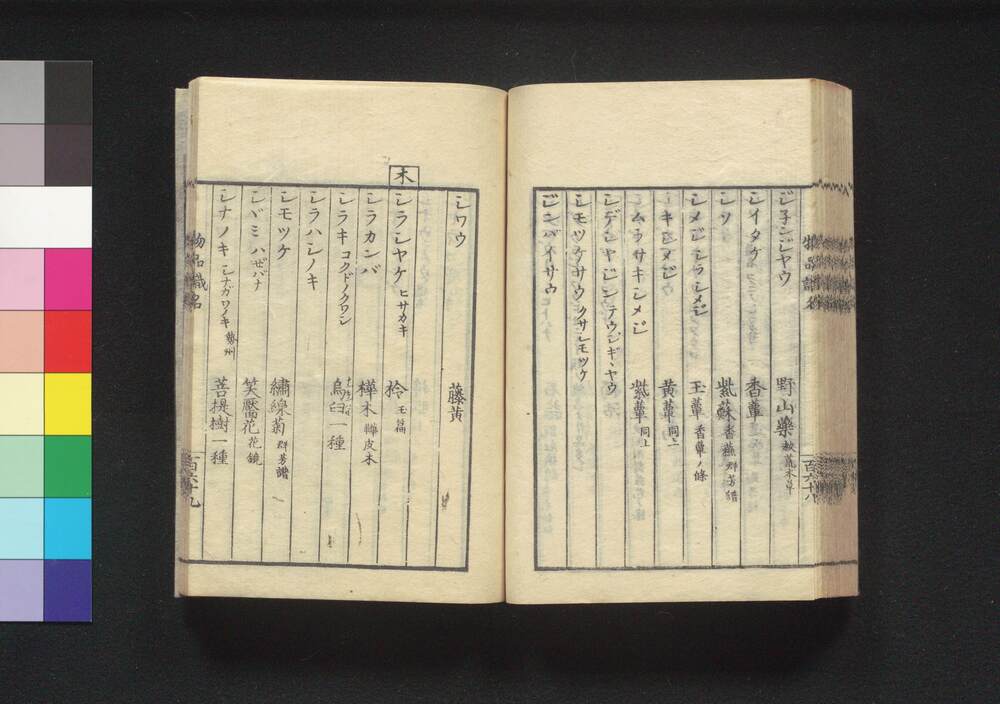 ジ子ンジヤウ 野山藥 救荒本草
シイタケ 香蕈
シソ 紫蘇 香蕪 群芳譜
シメジ シラシメジ 玉蕈 香蕈ノ條
キシメジ 黄蕈 同上
ムラサキシメジ 紫蕈 同上
シデシヤジン テウジギヽヤウ
シモツケサウ クサシモツケ
ジンバイサウ
百六十八
シワウ 藤黄
木
シラシヤケ ヒサカキ 柃 玉篇
シラカンバ 樺木 樺皮木
シラキ コクドノクワシ 烏臼一種
シラハシノキ
シモツケ 繡線菊 群芳譜
シヾミハゼバナ 笑靨花 花鏡
シナノキ シナガワノキ 勢州 菩提樹一種
物品識名
百六十九